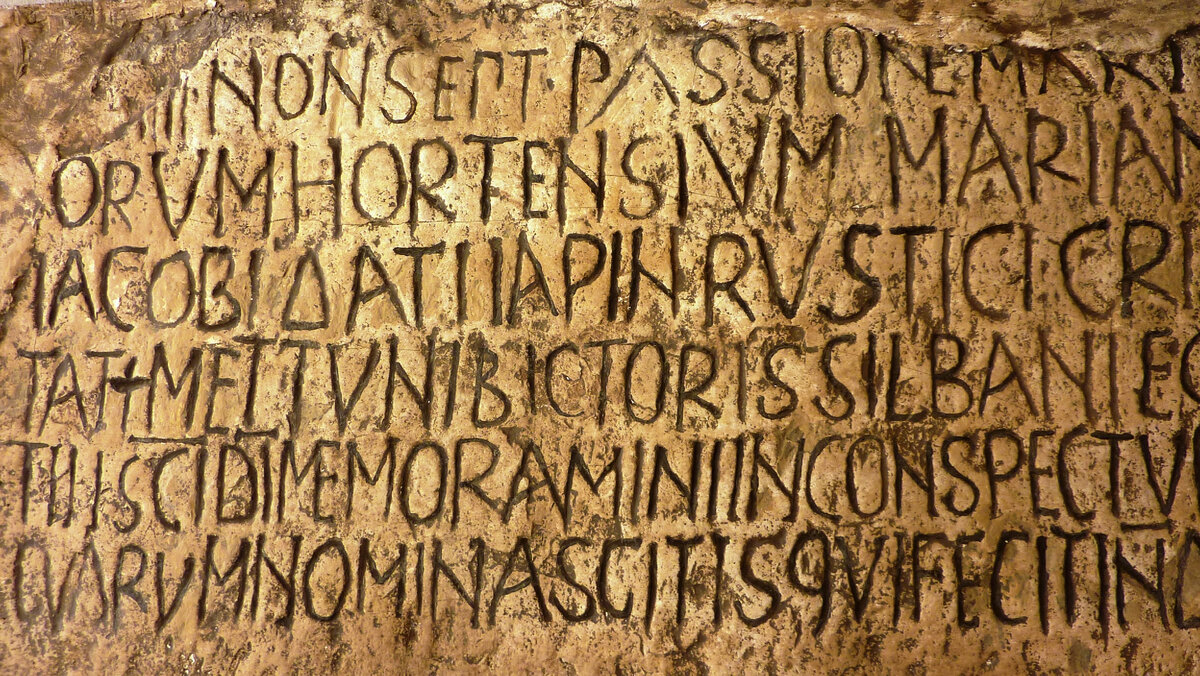 IIII NON SEPT · PASSIONE MART
ORVM HORTENSIVM MARIAN
IACOBI DATI IAPIN RVSTICI CRI
TAT + METTVNI BICTORIS SILBANI EG
TII SCI DI MEMORAMINI IN CONSPECTV
QVARVM NOMINA SCITIS QVI FECIT IN D